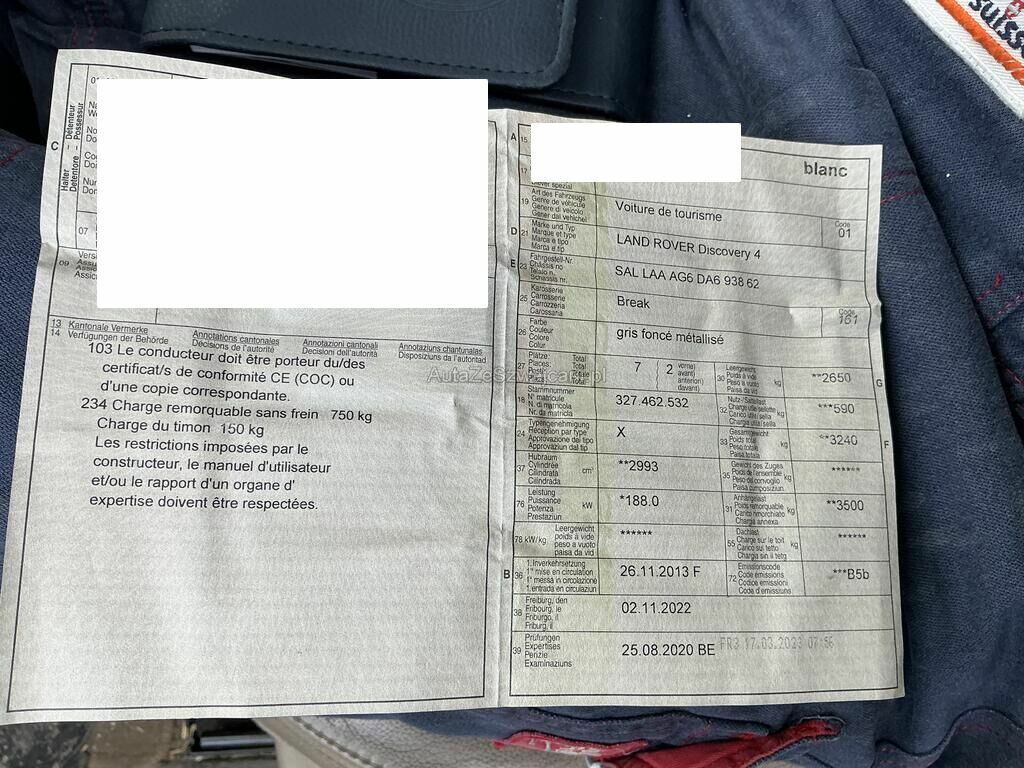 suisse
C
Halter – Détenteur –
Detentore – Possessur
07
09
13 Kantonale Vermerke Annotations cantonales Annotazioni cantonali Annotaziuns chantunalas
14 Verfügungen der Behörde Décisions de l'autorité Decisioni dell'autorità Disposiziuns da l'autoritad
103 Le conducteur doit être porteur du/des
certificat/s de conformité CE (COC) ou
d'une copie correspondante.
234 Charge remorquable sans frein 750 kg
Charge du timon 150 kg
Les restrictions imposées par le
constructeur, le manuel d'utilisateur
et/ou le rapport d'un organe d'
expertise doivent être respectées.
A 15
blanc
17
19 Art des Fahrzeugs
Genre de véhicule
Genere di veicolo
Gener dal vehichel
Voiture de tourisme
Code
01
D 21 Marke und Typ
Marque et type
Marca e tipo
Marca e tip
LAND ROVER Discovery 4
E 23 Fahrgestell-Nr.
Châssis no
Telaio n.
Schassis nr.
SAL LAA AG6 DA6 938 62
25 Karosserie
Carrosserie
Carrozzeria
Carossaria
Break
Code
161
26 Farbe
Couleur
Colore
Colur
gris foncé métallisé
27 Plätze: Total
Places: Total
Posti: Totale
Plazs: Total
7 2 vorne)
avant)
anteriori)
davant)
30 Leergewicht
Poids à vide
Peso a vuoto
Paisa da vid
kg
**2650
G
18 Stammnummer
N° matricule
N. di matricola
Nr. da matricla
327.462.532
32 Nutz-/Sattellast
Charge utile/sellette
Carico utile/sella
Chargia utila/sella
kg
***590
24 Typengenehmigung
Réception par type
Approvazione del tipo
Approvaziun dal tip
X
33 Gesamtgewicht
Poids total
Peso totale
Paisa totala
kg
**3240
F
37 Hubraum
Cylindrée
Cilindrata
Cilindrada
cm³
**2993
35 Gewicht des Zuges
Poids de l'ensemble
Peso del convoglio
Paisa cumposiziun
kg
******
76 Leistung
Puissance
Potenza
Prestaziun
kW
*188.0
31 Anhängelast
Poids remorquable
Carico rimorchiato
Chargia annexa
kg
**3500
78 kW/kg Leergewicht
poids à vide
peso a vuoto
paisa da vid
******
55 Dachlast
Charge sur le toit
Carico sul tetto
Chargia sin il tetg
kg
******
B 36 1. Inverkehrsetzung
1re mise en circulation
1a messa in circolazione
1. entrada en circulaziun
26.11.2013 F
72 Emissionscode
Code émissions
Codice emissioni
Code d'emissiuns
***B5b
38 Freiburg, den
Fribourg, le
Friburgo, il
Friburg, il
02.11.2022
39 Prüfungen
Expertises
Perizie
Examinaziuns
25.08.2020 BE
FR3 17.03.2023 07:56
AutaZeSzwajcarii.pl